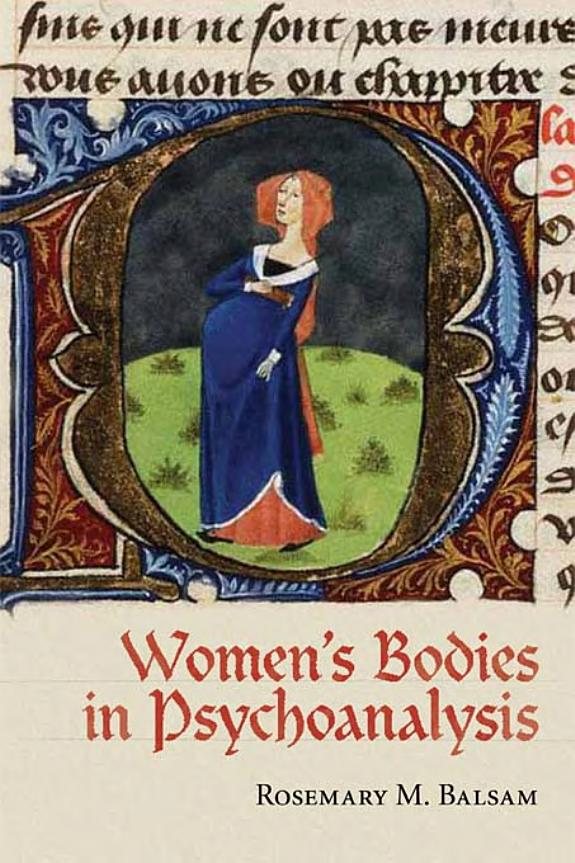 sont pas
vous auons ou chappitre
la
Women's Bodies
in Psychoanalysis
Rosemary M. Balsam